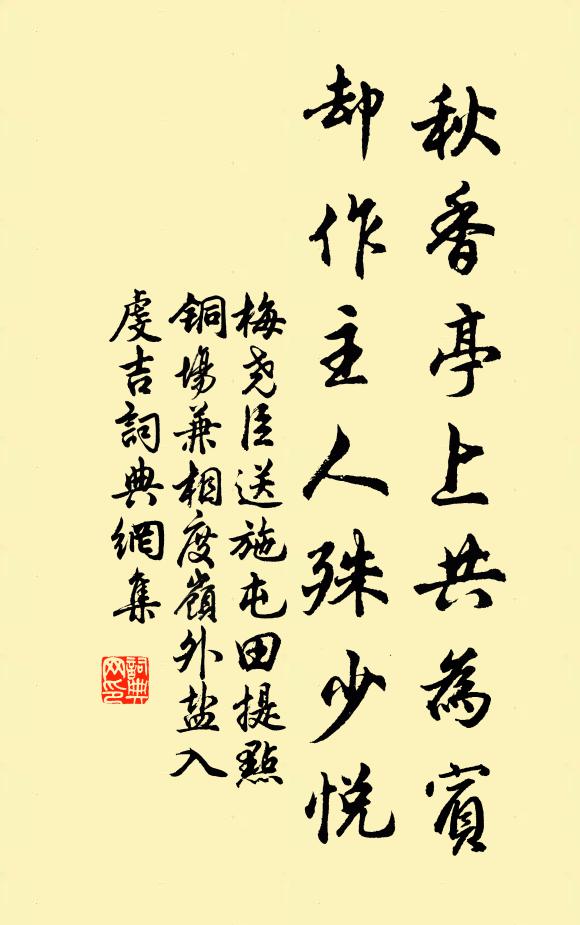 秋香亭上共為賓
却作主人殊少悅
梅尧臣送施屯田提點
铜場兼相度嶺外盐入
虔吉詞典網集
詞典网印